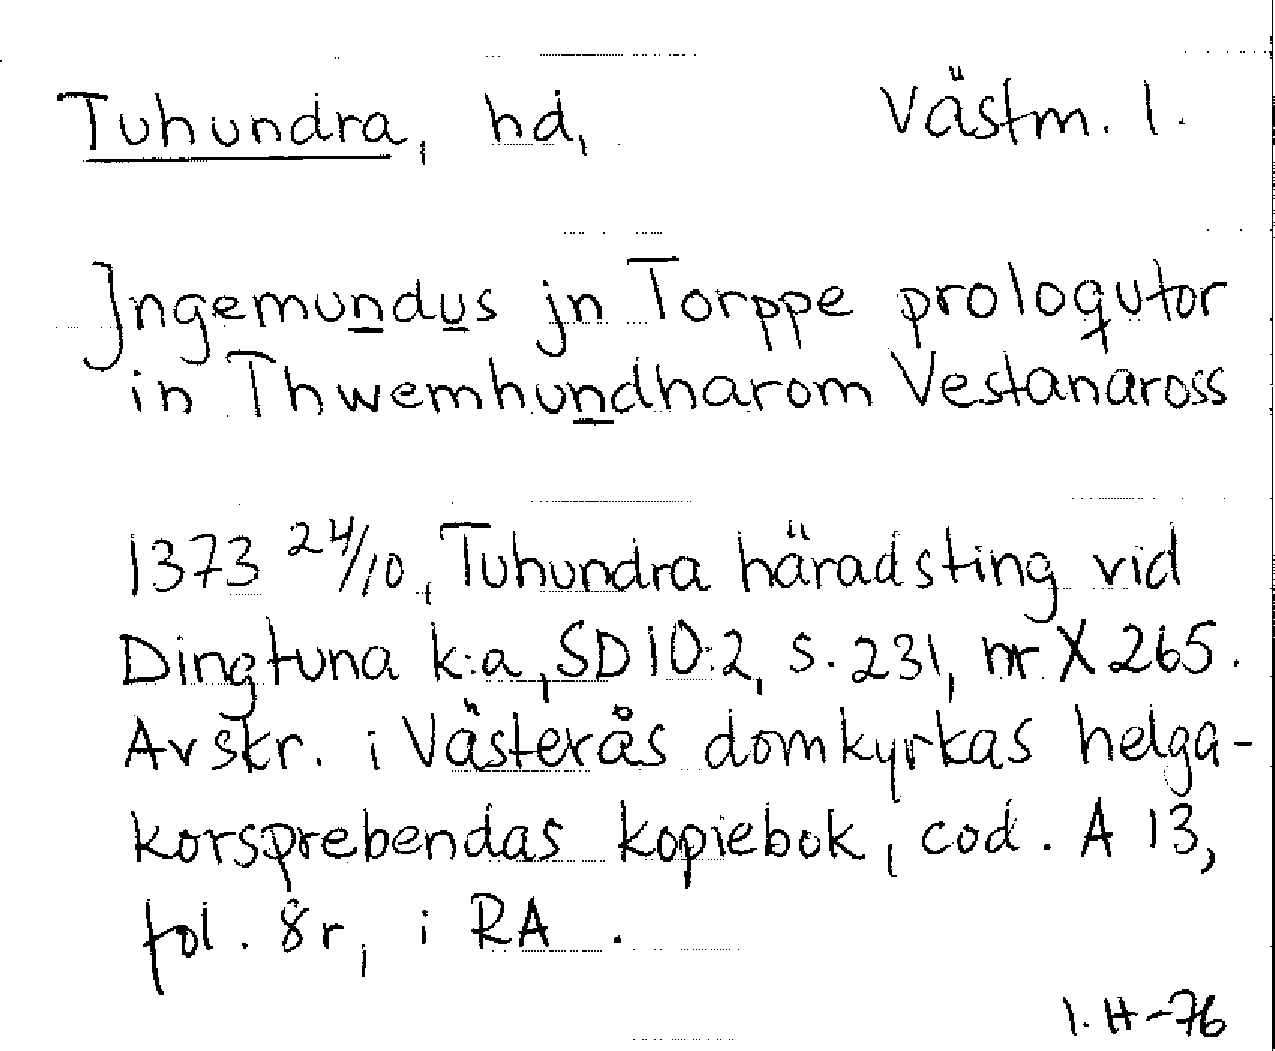 Tuhundra, hd, Västm. l.
Jngemundus jn Torppe proloqutor
in Thwemhundharom Vestanaross
1373 24/10, Tuhundra häradsting vid
Dingtuna k:a, SD 10:2, s. 231, nr X 265.
Avskr. i Västerås domkyrkas helga-
korsprebendas kopiebok, cod. A 13,
fol. 8r, i RA.
I. H-76